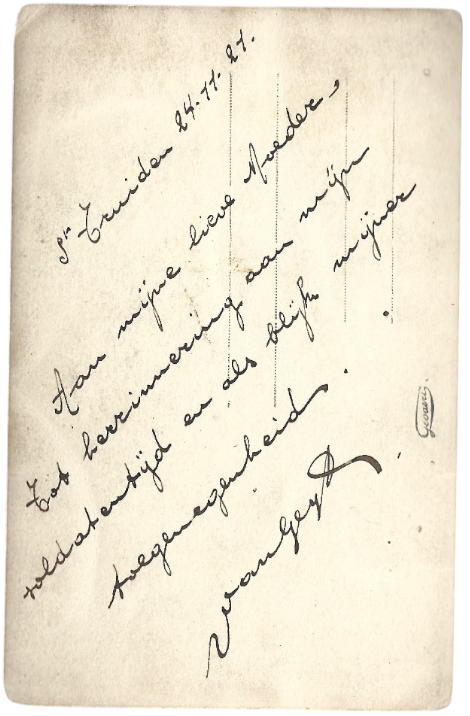 St Truiden 24.11.21.
Aan mijne lieve Moeder,
Tot herrinnering aan mijn
soldatentijd en als blijk mijner
toegenegenheid.
Van Geyt
Gevaert